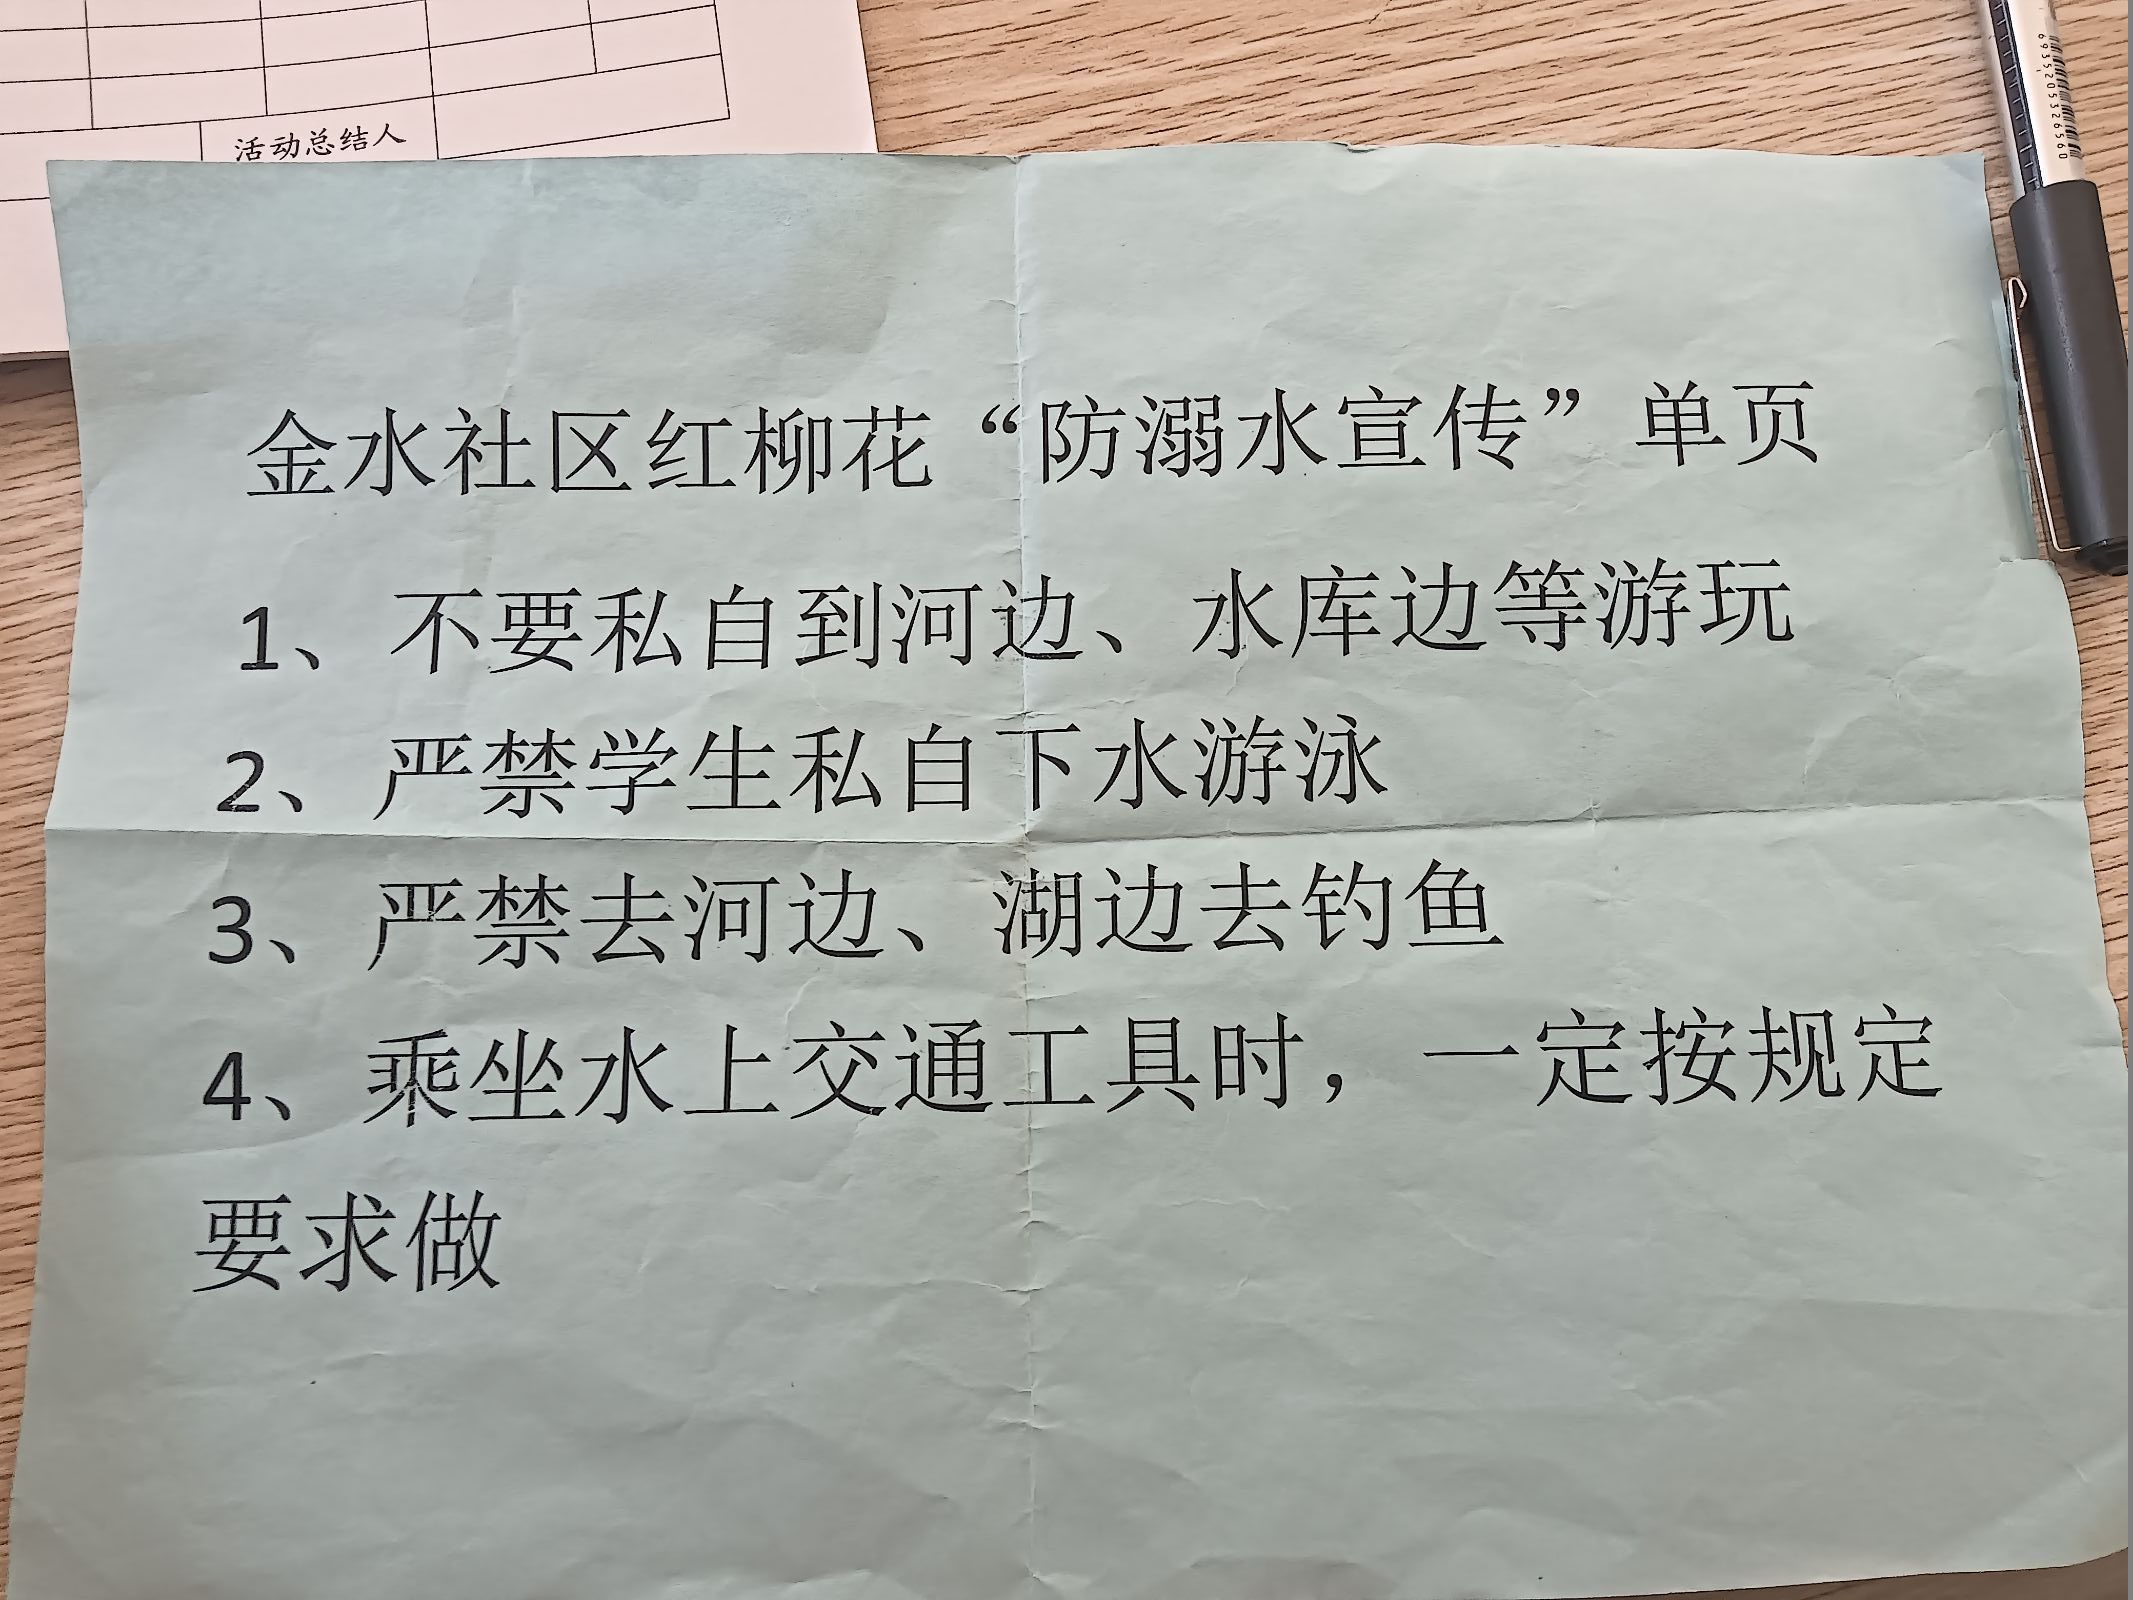 活动总结人
6935205326560
金水社区红柳花“防溺水宣传”单页
1、不要私自到河边、水库边等游玩
2、严禁学生私自下水游泳
3、严禁去河边、湖边去钓鱼
4、乘坐水上交通工具时，一定按规定
要求做